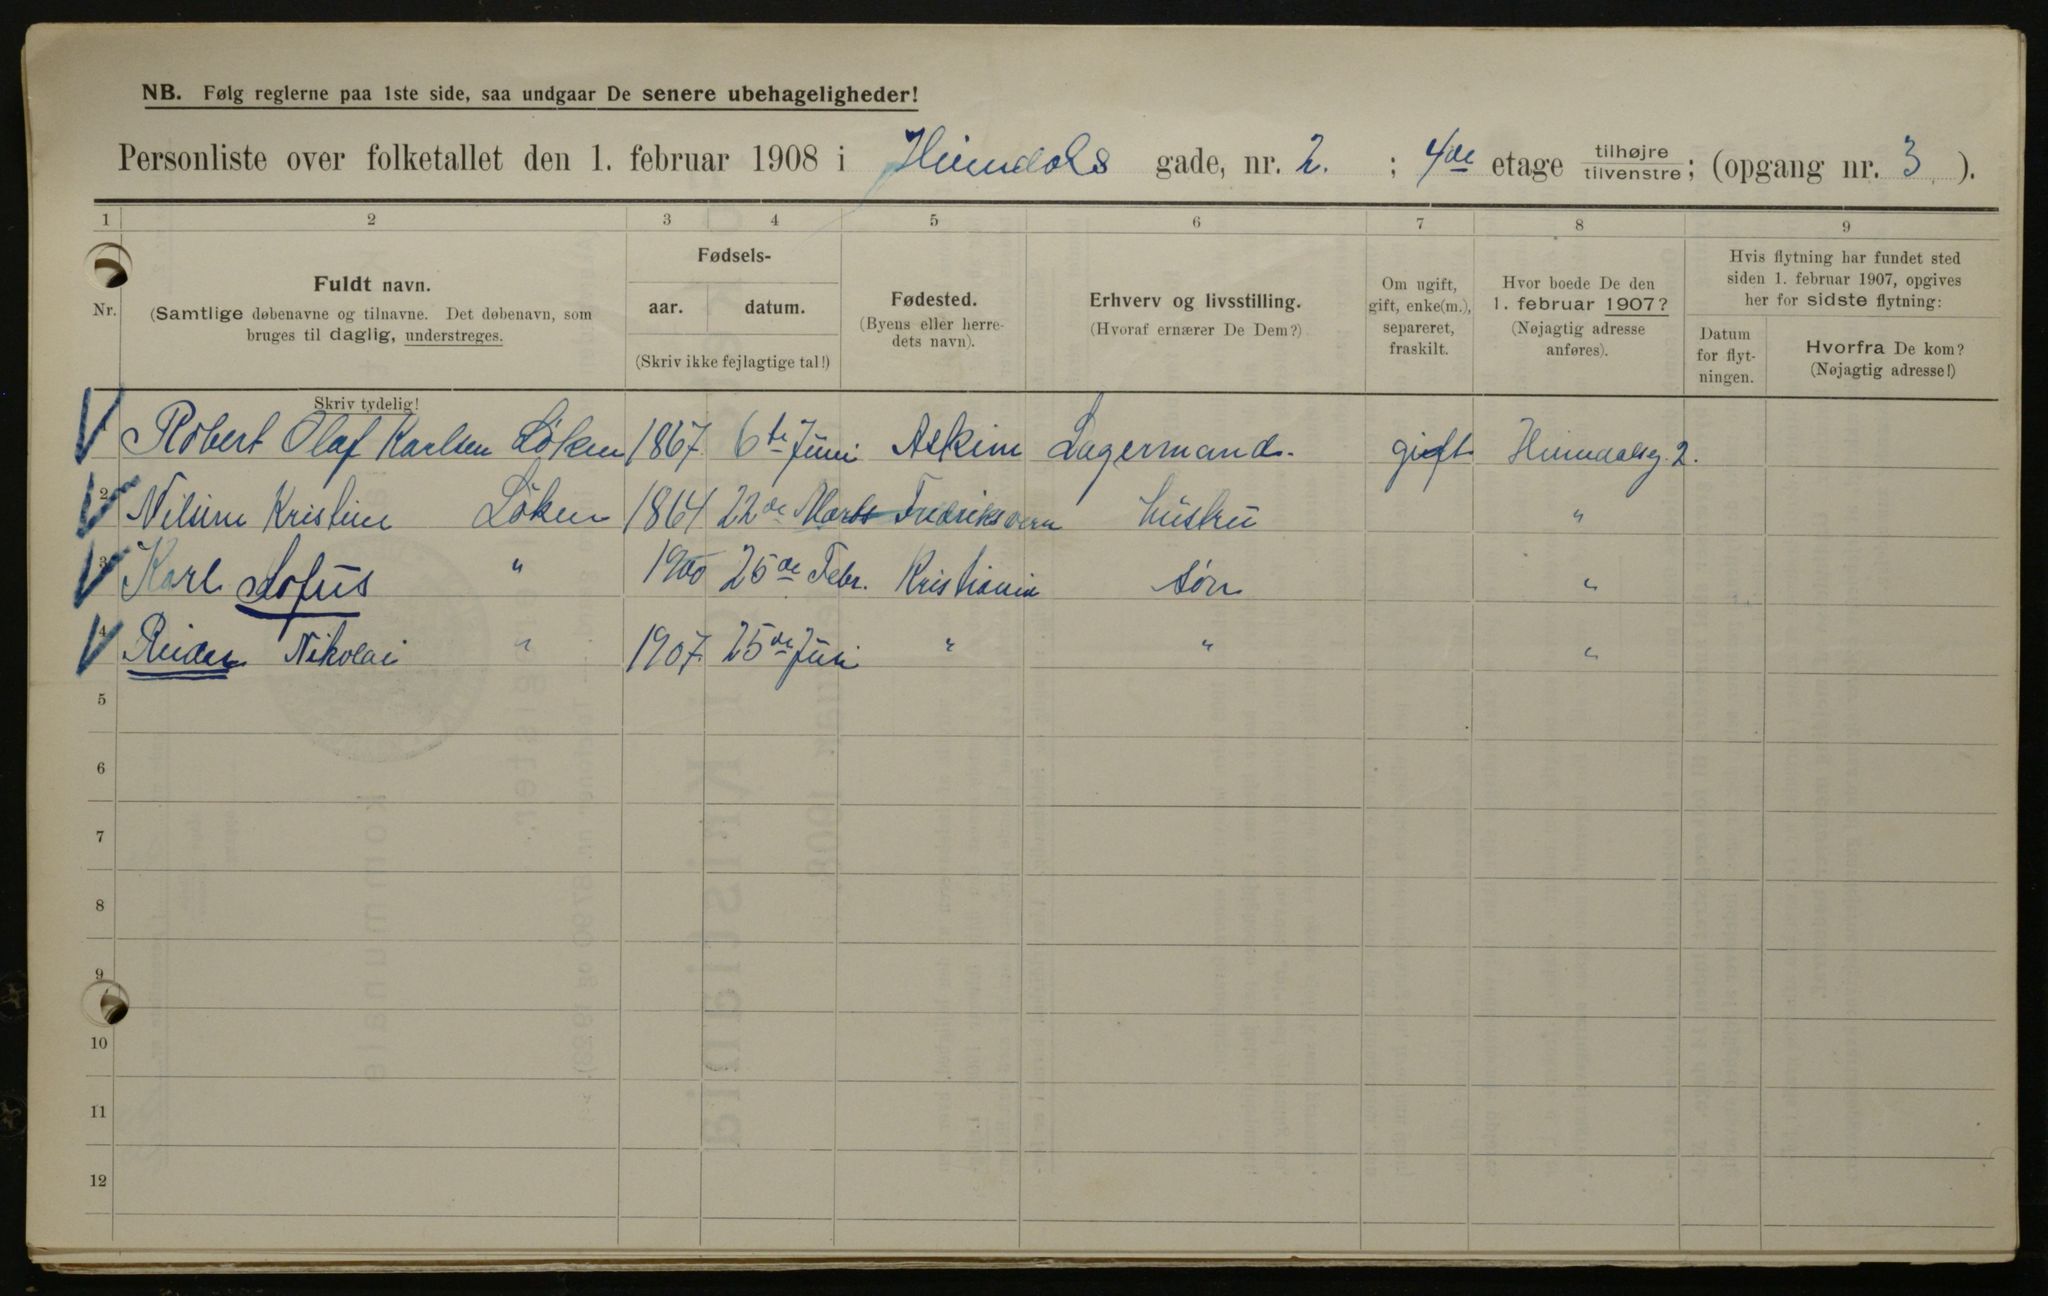 NB. Følg reglerne paa 1ste side, saa undgaar De senere ubehageligheder!
Personliste over folketallet den 1. februar 1908 i Heimdals gade, nr. 2. ; 4de etage tilhøjre tilvenstre; (opgang nr. 3 ).
1 2 3 4 5 6 7 8 9
Nr.
Fuldt navn.
(Samtlige døbenavne og tilnavne. Det døbenavn, som
bruges til daglig, understreges.
Skriv tydelig!
Fødsels-
aar. datum.
(Skriv ikke fejlagtige tal!)
Fødested.
(Byens eller herre-
dets navn).
Erhverv og livsstilling.
(Hvoraf ernærer De Dem?)
Om ugift,
gift, enke(m.),
separeret,
fraskilt.
Hvor boede De den
1. februar 1907?
(Nøjagtig adresse
anføres).
Hvis flytning har fundet sted
siden 1. februar 1907, opgives
her for sidste flytning:
Datum
for flyt-
ningen.
Hvorfra De kom?
(Nøjagtig adresse!)
Robert Olaf Karlsen Löken 1867 6te Juni Askim Lagermand. gift Heimdalsg. 2.
2 Kristine Löken 1864 22de Marts Fredriksvern Hustru "
3 Karl Sofus " 1900 25de Febr. Kristiania Sön "
4 Reidar Nikolai " 1907 25de Juni " " "
5
6
7
8
9
10
11
12